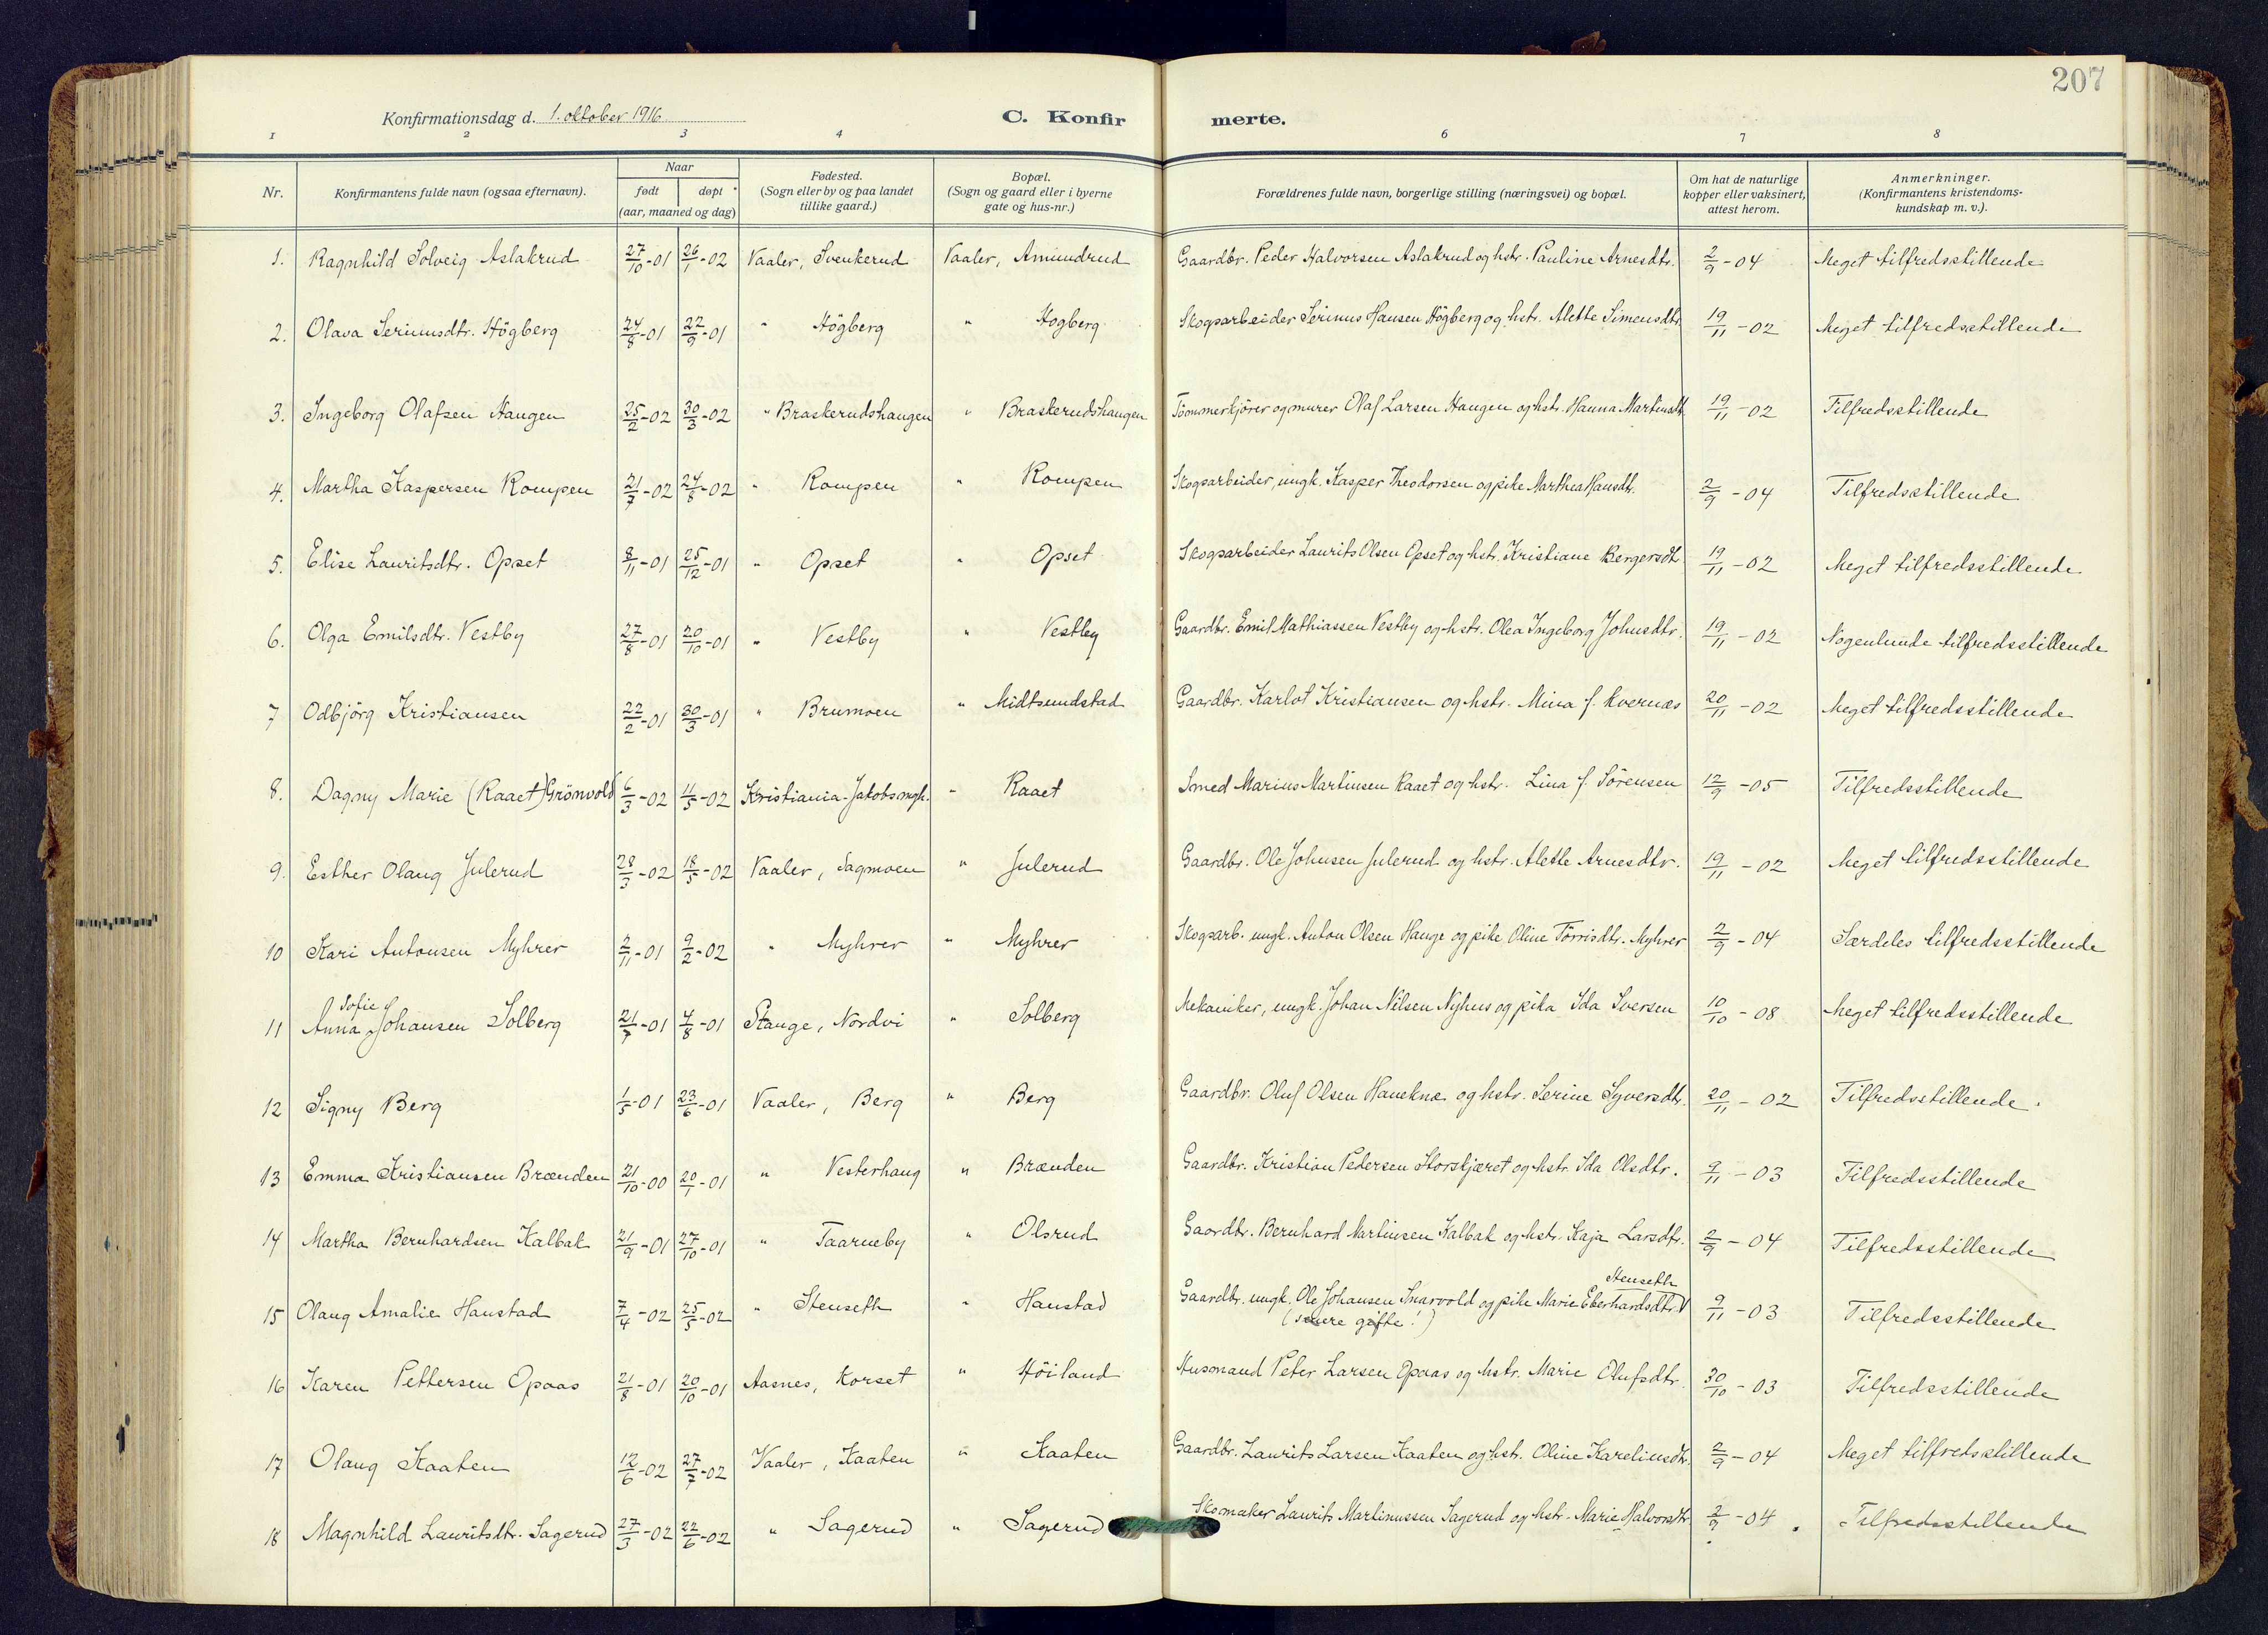 207
Konfirmationsdag d. 1. oktober 1916 C. Konfirmerte.
1 2 3 4 6 7 8
Nr. Konfirmantens fulde navn (ogsaa efternavn). Naar født døpt (aar, maaned og dag) Fødested. (Sogn eller by og paa landet tillike gaard.) Bopæl. (Sogn og gaard eller i byerne gate og hus-nr.) Forældrenes fulde navn, borgerlige stilling (næringsvei) og bopæl. Om hat de naturlige kopper eller vaksinert, attest herom. Anmerkninger. (Konfirmantens kristendomskundskap m. v.).
1. Ragnhild Solveig Aslakrud 27/10-01 26/1-02 Vaaler, Svenkerud Vaaler, Amundrud Gaardbr. Peder Halvorsen Aslakrud og hstr. Pauline Arnesdtr. 2/9-04 Meget tilfredsstillende
2. Olava Serinusdtr. Högberg 24/8-01 22/9-01 " Högberg " Hogberg Skogsarbeider Serinus Hansen Högberg og hstr. Alette Simensdtr 19/11-02 Meget tilfredsstillende
3. Ingeborg Olafsen Haugen 25/2-02 30/3-02 " Braskerudshaugen " Braskerudshaugen Tömmerkjörer og murer Olaf Larsen Haugen og hstr. Hanna Martinsdt. 19/11-02 Tilfredsstillende
4. Martha Kaspersen Rompen 21/7-02 24/8-02 " Rompen " Rompen Skogsarbeider, ungk. Kasper Theodorsen og pike Marthea Hansdtr. 2/9-04 Tilfredsstillende
5. Elise Lauritsdtr. Opset 8/11-01 25/12-01 " Opset " Opset Skogsarbeider Laurits Olsen Opset og hstr. Kristiane Bergersdt. 19/11-02 Meget tilfredsstillende
6. Olga Emilsdtr. Vestby 27/8-01 20/10-01 " Vestby " Vestby Gaardbr. Emil Mathiassen Vestby og hstr. Olea Ingeborg Johnsdtr. 19/11-02 Nogenlunde tilfredsstillende
7 Odbjörg Kristiansen 22/2-01 30/3-01 " Brumoen " Midtsundstad Gaardbr. Karlot Kristiansen og hstr. Mina f. Kvernæs 20/11-02 Meget tilfredsstillende
8. Dagny Marie (Raaet) Grönvold 6/3-02 11/5-02 Kristiania-Jakobs mgh. " Raaet Smed Marius Martinsen Raaet og hstr. Lina f. Sörensen 12/9-05 Tilfredsstillende
9. Esther Olaug Julerud 28/3-02 18/5-02 Vaaler, Sagmoen " Julerud Gaardbr. Ole Johnsen Julerud og hstr. Alette Arnesdtr. 19/11-02 Meget tilfredsstillende
10 Kari Antonsen Myhrer 2/11-01 9/2-02 " Myhrer " Myhrer Skogsarb. ungk. Anton Olsen Hauge og pike Oline Törrisdtr. Myhrer 2/9-04 Særdeles tilfredsstillende
11 Anna Sofie Johansen Solberg 21/7-01 4/8-01 Stange, Nordvi " Solberg Mekaniker, ungk. Johan Nilsen Nyhus og pika Ida Iversen 10/10-08 Meget tilfredsstillende
12 Signy Berg 1/5-01 23/6-01 Vaaler, Berg " Berg Gaardbr. Oluf Olsen Hanekne og hstr. Serine Syversdtr. 20/11-02 Tilfredsstillende.
13 Emma Kristiansen Brænden 21/10-00 20/1-01 " Vesterhaug " Brænden Gaardbr. Kristian Pedersen Storskjæret og hstr. Ida Olsdtr. 9/11-03 Tilfredsstillende
14 Martha Bernhardsen Kalbak 21/9-01 27/10-01 " Taarneby " Olsrud Gaardbr. Bernhard Martinsen Kalbak og hstr. Kaja Larsdtr. 2/9-04 Tilfredsstillende
15 Olaug Amalie Hanstad 7/4-02 25/5-02 " Stenseth " Hanstad Gaardbr. ungk. Ole Johansen Snarvold og pike Marie Eberhardsdtr. Stenseth (senere gifte!) 9/11-03 Tilfredsstillende
16 Karen Pettersen Opaas 21/8-01 20/10-01 Aasnes, Korset " Höiland Husmand Peter Larsen Opaas og hstr. Marie Olufsdtr. 30/10-03 Tilfredsstillende
17 Olaug Kaaten 12/6-02 27/7-02 Vaaler, Kaaten " Kaaten Gaardbr. Laurits Larsen Kaaten og hstr. Oline Kareliusdtr. 2/9-04 Meget tilfredsstillende
18 Magnhild Lauritsdtr. Sagerud 27/3-02 22/6-02 " Sagerud " Sagerud Skomaker Laurits Martinussen Sagerud og hstr. Marie Halvorsdtr. 2/9-04. Tilfredsstillende